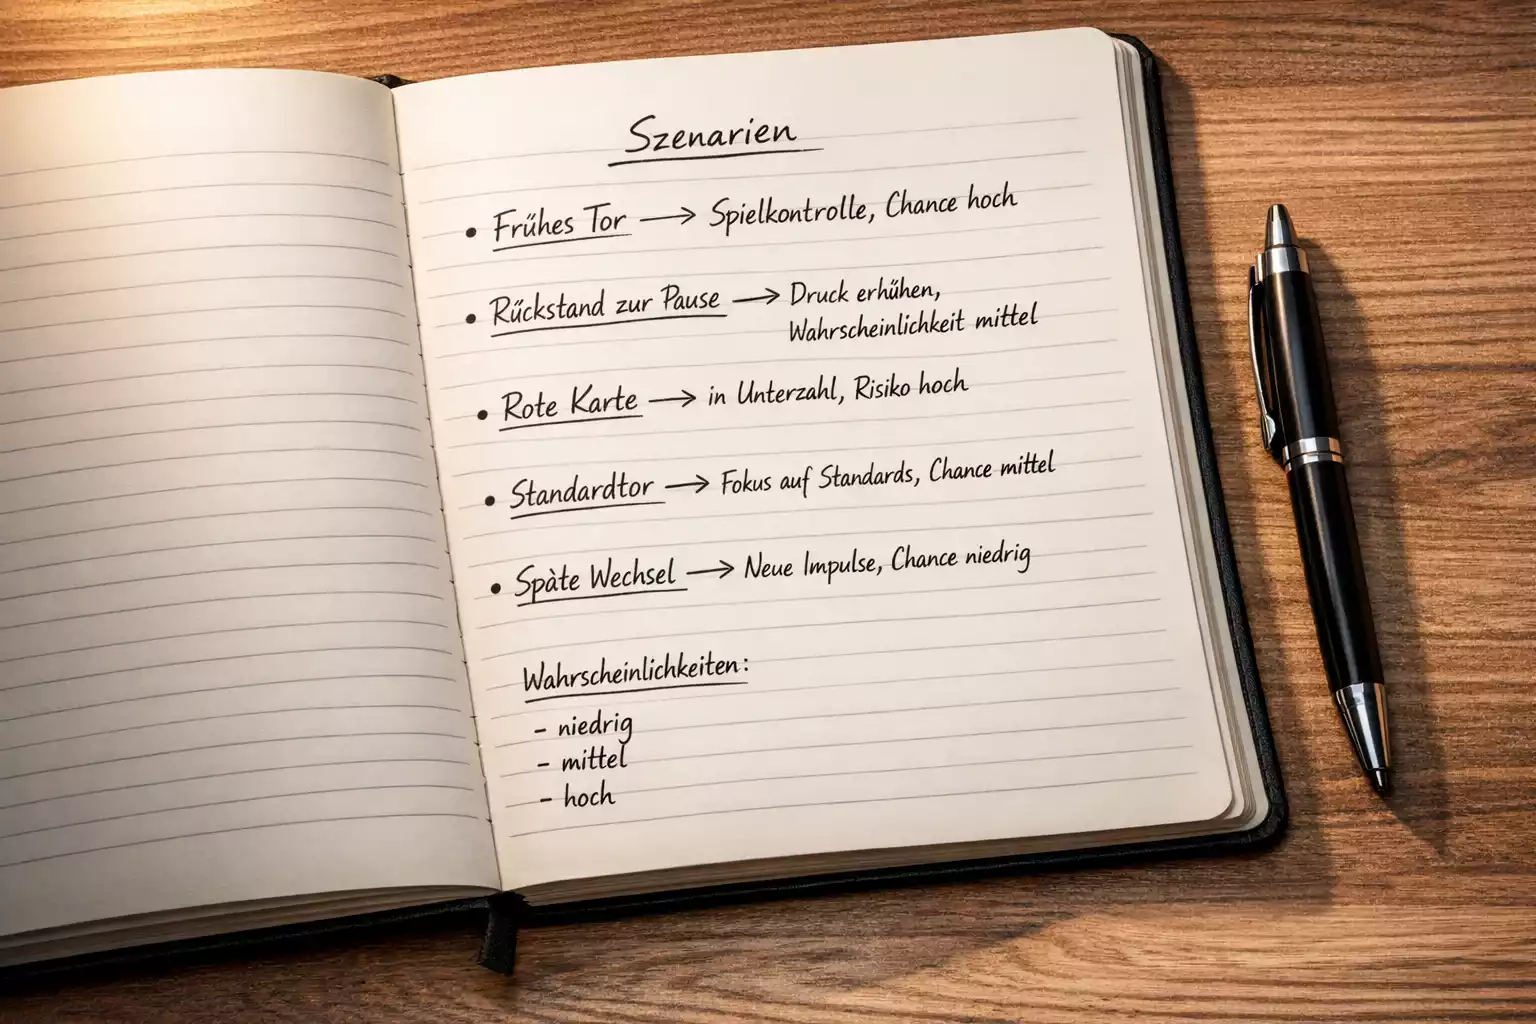 Szenarien
• Frühes Tor → Spielkontrolle, Chance hoch
• Rückstand zur Pause → Druck erhühen,
Wahrscheinlichkeit mittel
• Rote Karte → in Unterzahl, Risiko hoch
• Standardtor → Fokus auf Standards, Chance mittel
• Spàte Wechsel → Neue Impulse, Chance niedrig
Wahrscheinlichkeiten:
- niedrig
- mittel
- hoch